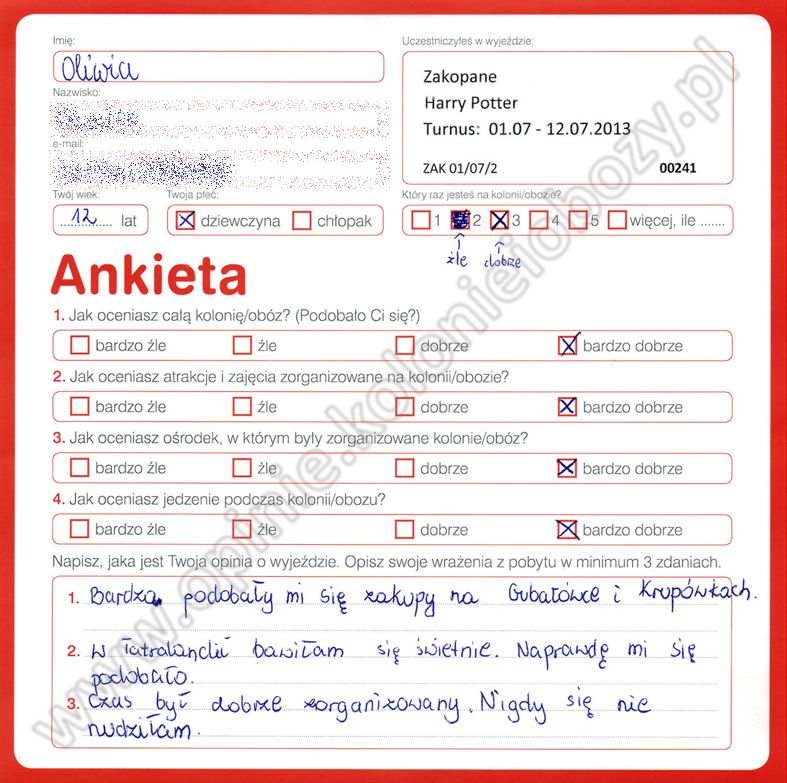 Imię:
Oliwia
Nazwisko:
e-mail:
Twój wiek:
12 lat
Twoja płeć:
dziewczyna chłopak
Uczestniczyłeś w wyjeździe:
Zakopane
Harry Potter
Turnus: 01.07 - 12.07.2013
ZAK 01/07/2 00241
Który raz jesteś na kolonii/obozie?
1 2 3 4 5 więcej, ile .......
źle dobrze
Ankieta
1. Jak oceniasz całą kolonię/obóz? (Podobało Ci się?)
bardzo źle źle dobrze bardzo dobrze
2. Jak oceniasz atrakcje i zajęcia zorganizowane na kolonii/obozie?
bardzo źle źle dobrze bardzo dobrze
3. Jak oceniasz ośrodek, w którym były zorganizowane kolonie/obóz?
bardzo źle źle dobrze bardzo dobrze
4. Jak oceniasz jedzenie podczas kolonii/obozu?
bardzo źle źle dobrze bardzo dobrze
Napisz, jaka jest Twoja opinia o wyjeździe. Opisz swoje wrażenia z pobytu w minimum 3 zdaniach.
1. Bardzo podobały mi się zakupy na Gubałówce i Krupówkach.
2. W tatralandii bawiłam się świetnie. Naprawdę mi się
podobało.
3. Czas był dobrze zorganizowany. Nigdy się nie
nudziłam.
www.opinie.kolonieiobozy.pl